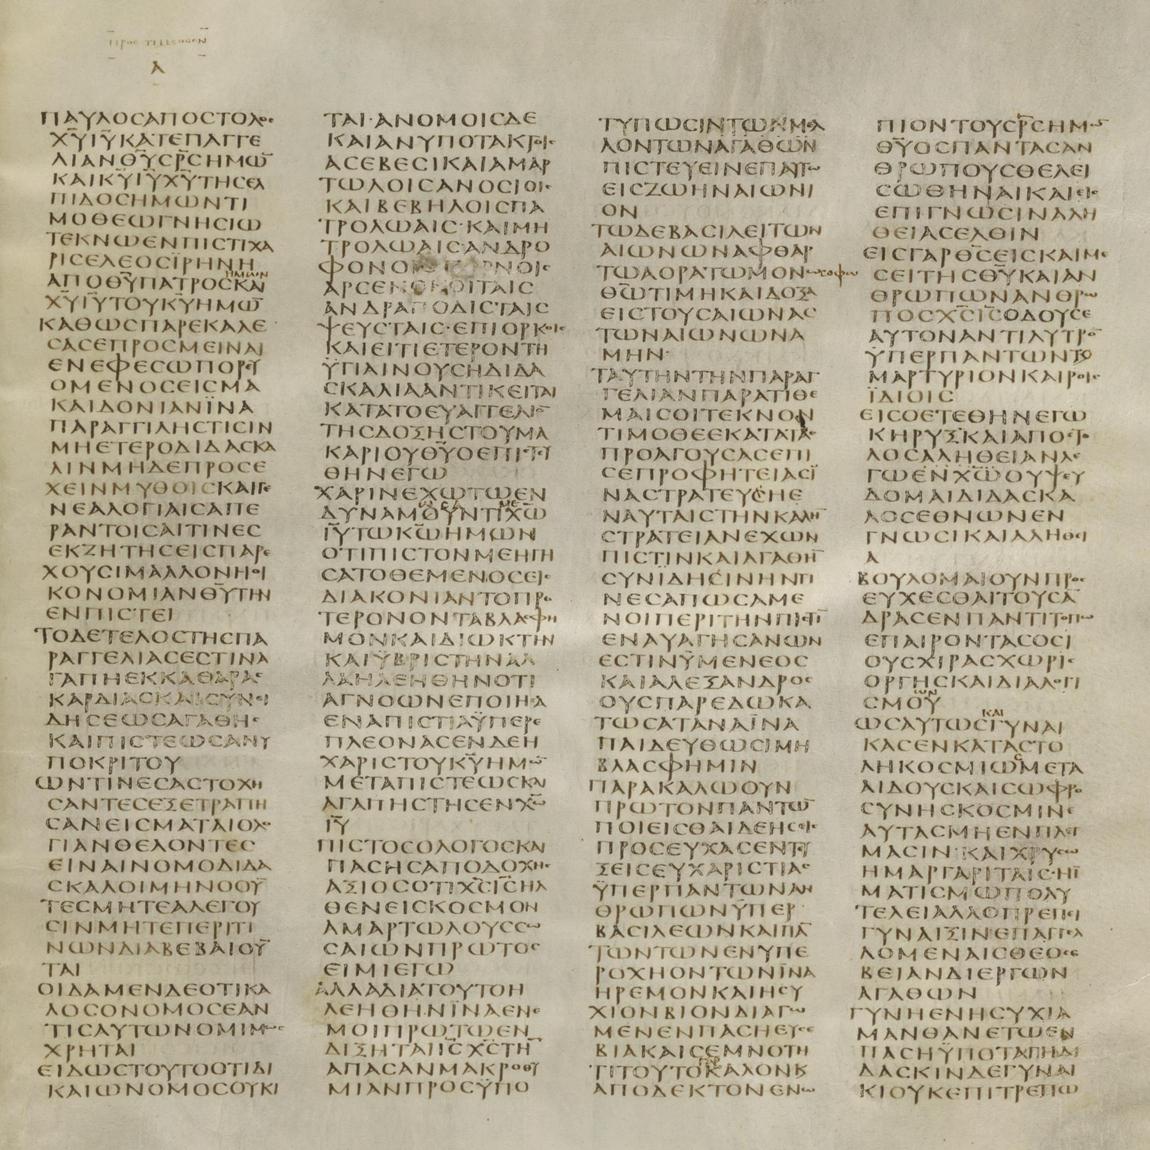 ΠΡΟΣ ΤΙΜΟΘΕΟΝ
Α
ΠΑΥΛΟϹΑΠΟϹΤΟΛΟϹ
Χ̅Υ̅Ι̅Υ̅ΚΑΤΕΠΑΓΓΕ
ΛΙΑΝΘ̅Υ̅Ϲ̅Ρ̅Ϲ̅ΗΜΩ̅
ΚΑΙΚ̅Υ̅Ι̅Υ̅Χ̅Υ̅ΤΗϹΕΛ
ΠΙΔΟϹΗΜΩΝΤΙ
ΜΟΘΕΩΓΝΗϹΙΩ
ΤΕΚΝΩΕΝΠΙϹΤΙΧΑ
ΡΙϹΕΛΕΟϹΪΡΗΝΗ
ΑΠΟΘ̅Υ̅ΠΑΤΡΟϹΗΜΩΝΚΑΙ
Χ̅Υ̅Ι̅Υ̅ΤΟΥΚ̅Υ̅ΗΜΩ̅
ΚΑΘΩϹΠΑΡΕΚΑΛΕ
ϹΑϹΕΠΡΟϹΜΕΙΝΑΙ
ΕΝΕΦΕϹΩΠΟΡΕΥ
ΟΜΕΝΟϹΕΙϹΜΑ
ΚΑΙΔΟΝΙΑΝΪΝΑ
ΠΑΡΑΓΓΙΛΗϹΤΙϹΙΝ
ΜΗΕΤΕΡΟΔΙΔΑϹΚΑ
ΛΙΝΜΗΔΕΠΡΟϹΕ
ΧΕΙΝΜΥΘΟΙϹΚΑΙΓΕ
ΝΕΑΛΟΓΙΑΙϹΑΠΕ
ΡΑΝΤΟΙϹΑΙΤΙΝΕϹ
ΕΚΖΗΤΗϹΕΙϹΠΑΡΕ
ΧΟΥϹΙΜΑΛΛΟΝΗΟΙ
ΚΟΝΟΜΙΑΝΘ̅Υ̅ΤΗΝ
ΕΝΠΙϹΤΕΙ
ΤΟΔΕΤΕΛΟϹΤΗϹΠΑ
ΡΑΓΓΕΛΙΑϹΕϹΤΙΝΑ
ΓΑΠΗΕΚΚΑΘΑΡΑϹ
ΚΑΡΔΙΑϹΚΑΙϹΥΝΕΙ
ΔΗϹΕΩϹΑΓΑΘΗϹ
ΚΑΙΠΙϹΤΕΩϹΑΝΥ
ΠΟΚΡΙΤΟΥ
ΩΝΤΙΝΕϹΑϹΤΟΧΗ
ϹΑΝΤΕϹΕΞΕΤΡΑΠΗ
ϹΑΝΕΙϹΜΑΤΑΙΟΛΟ
ΓΙΑΝΘΕΛΟΝΤΕϹ
ΕΙΝΑΙΝΟΜΟΔΙΔΑ
ϹΚΑΛΟΙΜΗΝΟΟΥ̅
ΤΕϹΜΗΤΕΑΛΕΓΟΥ
ϹΙΝΜΗΤΕΠΕΡΙΤΙ
ΝΩΝΔΙΑΒΕΒΑΙΟΥ̅
ΤΑΙ
ΟΙΔΑΜΕΝΔΕΟΤΙΚΑ
ΛΟϹΟΝΟΜΟϹΕΑΝ
ΤΙϹΑΥΤΩΝΟΜΙΜΩϹ
ΧΡΗΤΑΙ
ΕΙΔΩϹΤΟΥΤΟΟΤΙΔΙ
ΚΑΙΩΝΟΜΟϹΟΥΚΙ
ΤΑΙ·ΑΝΟΜΟΙϹΔΕ
ΚΑΙΑΝΥΠΟΤΑΚΤΟΙϹ
ΑϹΕΒΕϹΙΚΑΙΑΜΑΡ
ΤΩΛΟΙϹΑΝΟϹΙΟΙϹ
ΚΑΙΒΕΒΗΛΟΙϹΠΑ
ΤΡΟΛΩΑΙϹ·ΚΑΙΜΗ
ΤΡΟΛΩΑΙϹΑΝΔΡΟ
ΦΟΝΟΙϹΠΟΡΝΟΙϹ
ΑΡϹΕΝΟΚΟΙΤΑΙϹ
ΑΝΔΡΑΠΟΔΙϹΤΑΙϹ
ΨΕΥϹΤΑΙϹ·ΕΠΙΟΡΚΟΙϹ
ΚΑΙΕΙΤΙΕΤΕΡΟΝΤΗ
ΫΓΙΑΙΝΟΥϹΗΔΙΔΑ
ϹΚΑΛΙΑΑΝΤΙΚΕΙΤΑΙ
ΚΑΤΑΤΟΕΥΑΓΓΕΛΙΟ̅
ΤΗϹΔΟΞΗϹΤΟΥΜΑ
ΚΑΡΙΟΥΘ̅Υ̅ΟΕΠΙϹΤΕΥ
ΘΗΝΕΓΩ
ΧΑΡΙΝΕΧΩΤΩΕΝ
ΔΥΝΑΜΟΥΝΤΙΧ̅Ω̅
Ι̅Υ̅ΤΩΚ̅Ω̅ΗΜΩΝ
ΟΤΙΠΙϹΤΟΝΜΕΗΓΗ
ϹΑΤΟΘΕΜΕΝΟϹΕΙϹ
ΔΙΑΚΟΝΙΑΝΤΟΠΡΟ
ΤΕΡΟΝΟΝΤΑΒΛΑϹΦΗ
ΜΟΝΚΑΙΔΙΩΚΤΗΝ
ΚΑΙΫΒΡΙϹΤΗΝΑΛ
ΛΑΗΛΕΗΘΗΝΟΤΙ
ΑΓΝΟΩΝΕΠΟΙΗϹΑ
ΕΝΑΠΙϹΤΙΑΫΠΕΡΕ
ΠΛΕΟΝΑϹΕΝΔΕΗ
ΧΑΡΙϹΤΟΥΚ̅Υ̅ΗΜΩ̅
ΜΕΤΑΠΙϹΤΕΩϹΚΑΙ
ΑΓΑΠΗϹΤΗϹΕΝΧ̅Ω̅
Ι̅Υ̅
ΠΙϹΤΟϹΟΛΟΓΟϹΚΑΙ
ΠΑϹΗϹΑΠΟΔΟΧΗϹ
ΑΞΙΟϹΟΤΙΧ̅Ϲ̅Ι̅Ϲ̅ΗΛ
ΘΕΝΕΙϹΚΟϹΜΟΝ
ΑΜΑΡΤΩΛΟΥϹϹΩ
ϹΑΙΩΝΠΡΩΤΟϹ
ΕΙΜΙΕΓΩ
ΑΛΛΑΔΙΑΤΟΥΤΟΗ
ΛΕΗΘΗΝΪΝΑΕΝΕ
ΜΟΙΠΡΩΤΩΕΝ
ΔΙΞΗΤΑΙΙ̅Ϲ̅Χ̅Ϲ̅ΤΗ̅
ΑΠΑϹΑΝΜΑΚΡΟΘΥ
ΜΙΑΝΠΡΟϹΥΠΟ
ΤΥΠΩϹΙΝΤΩΝΜΕΛ
ΛΟΝΤΩΝΑΓΑΘΩΝ
ΠΙϹΤΕΥΕΙΝΕΠΑΥΤΩ
ΕΙϹΖΩΗΝΑΙΩΝΙ
ΟΝ
ΤΩΔΕΒΑϹΙΛΕΙΤΩΝ
ΑΙΩΝΩΝΑΦΘΑΡ
ΤΩΑΟΡΑΤΩΜΟΝΩϹΟΦΩ
Θ̅Ω̅ΤΙΜΗΚΑΙΔΟΞΑ
ΕΙϹΤΟΥϹΑΙΩΝΑϹ
ΤΩΝΑΙΩΝΩΝΑ
ΜΗΝ·
ΤΑΥΤΗΝΤΗΝΠΑΡΑΓ
ΓΕΛΙΑΝΠΑΡΑΤΙΘΕ
ΜΑΙϹΟΙΤΕΚΝΟΝ
ΤΙΜΟΘΕΕΚΑΤΑΤΑϹ
ΠΡΟΑΓΟΥϹΑϹΕΠΙ
ϹΕΠΡΟΦΗΤΕΙΑϹΪ
ΝΑϹΤΡΑΤΕΥϹΗΕ
ΝΑΥΤΑΙϹΤΗΝΚΑΛΗ̅
ϹΤΡΑΤΕΙΑΝΕΧΩΝ
ΠΙϹΤΙΝΚΑΙΑΓΑΘΗ̅
ϹΥΝΙΔΗϹΙΝΗΝΤΙ
ΝΕϹΑΠΩϹΑΜΕ
ΝΟΙΠΕΡΙΤΗΝΠΙϹΤΙ̅
ΕΝΑΥΑΓΗϹΑΝΩΝ
ΕϹΤΙΝΫΜΕΝΕΟϹ
ΚΑΙΑΛΕΞΑΝΔΡΟϹ
ΟΥϹΠΑΡΕΔΩΚΑ
ΤΩϹΑΤΑΝΑΪΝΑ
ΠΑΙΔΕΥΘΩϹΙΜΗ
ΒΛΑϹΦΗΜΙΝ
ΠΑΡΑΚΑΛΩΟΥΝ
ΠΡΩΤΟΝΠΑΝΤΩ̅
ΠΟΙΕΙϹΘΑΙΔΕΗϹΕΙϹ
ΠΡΟϹΕΥΧΑϹΕΝΤΕΥ
ΞΕΙϹΕΥΧΑΡΙϹΤΙΑϹ
ΫΠΕΡΠΑΝΤΩΝΑΝ
ΘΡΩΠΩΝΫΠΕΡ
ΒΑϹΙΛΕΩΝΚΑΙΠΑ̅
ΤΩΝΤΩΝΕΝΥΠΕ
ΡΟΧΗΟΝΤΩΝΪΝΑ
ΗΡΕΜΟΝΚΑΙΗϹΥ
ΧΙΟΝΒΙΟΝΔΙΑΓΩ
ΜΕΝΕΝΠΑϹΗΕΥϹΕ
ΒΙΑΚΑΙϹΕΜΝΟΤΗ
ΤΙΤΟΥΤΟΚΑΛΟΝΚΑΙ
ΑΠΟΔΕΚΤΟΝΕΝΩ
ΠΙΟΝΤΟΥϹ̅Ρ̅Ϲ̅ΗΜΩ̅
Θ̅Υ̅ΟϹΠΑΝΤΑϹΑΝ
ΘΡΩΠΟΥϹΘΕΛΕΙ
ϹΩΘΗΝΑΙΚΑΙΕΙϹ
ΕΠΙΓΝΩϹΙΝΑΛΗ
ΘΕΙΑϹΕΛΘΙΝ
ΕΙϹΓΑΡΘ̅Ϲ̅ΕΙϹΚΑΙΜΕ
ϹΕΙΤΗϹΘ̅Υ̅ΚΑΙΑΝ
ΘΡΩΠΩΝΑΝΘΡΩ
ΠΟϹΧ̅Ϲ̅Ι̅Ϲ̅ΟΔΟΥϹΕ
ΑΥΤΟΝΑΝΤΙΛΥΤΡΟ̅
ΫΠΕΡΠΑΝΤΩΝΤΟ
ΜΑΡΤΥΡΙΟΝΚΑΙΡΟΙϹ
ΪΔΙΟΙϹ
ΕΙϹΟΕΤΕΘΗΝΕΓΩ
ΚΗΡΥΞΚΑΙΑΠΟϹΤΟ
ΛΟϹΑΛΗΘΕΙΑΝΛΕ
ΓΩΕΝΧ̅Ω̅ΟΥΨΕΥ
ΔΟΜΑΙΔΙΔΑϹΚΑ
ΛΟϹΕΘΝΩΝΕΝ
ΓΝΩϹΙΚΑΙΑΛΗΘΕΙ
Α
ΒΟΥΛΟΜΑΙΟΥΝΠΡΟϹ
ΕΥΧΕϹΘΑΙΤΟΥϹΑ̅
ΔΡΑϹΕΝΠΑΝΤΙΤΟΠΩ
ΕΠΑΙΡΟΝΤΑϹΟϹΙ
ΟΥϹΧΙΡΑϹΧΩΡΙϹ
ΟΡΓΗϹΚΑΙΔΙΑΛΟΓΙ
ϹΜΟΥ
ΩϹΑΥΤΩϹΚΑΙΓΥΝΑΙ
ΚΑϹΕΝΚΑΤΑϹΤΟ
ΛΗΚΟϹΜΙΩΜΕΤΑ
ΑΙΔΟΥϹΚΑΙϹΩΦΡΟ
ϹΥΝΗϹΚΟϹΜΙΝΕ
ΑΥΤΑϹΜΗΕΝΠΛΕΓ
ΜΑϹΙΝ·ΚΑΙΧΡΥϹΩ
ΗΜΑΡΓΑΡΙΤΑΙϹ·ΗΪ
ΜΑΤΙϹΜΩΠΟΛΥ
ΤΕΛΕΙΑΛΛΟΠΡΕΠΕΙ
ΓΥΝΑΙΞΙΝΕΠΑΓΓΕΛ
ΛΟΜΕΝΑΙϹΘΕΟϹΕ
ΒΕΙΑΝΔΙΕΡΓΩΝ
ΑΓΑΘΩΝ
ΓΥΝΗΕΝΗϹΥΧΙΑ
ΜΑΝΘΑΝΕΤΩΕΝ
ΠΑϹΗΫΠΟΤΑΓΗΔΙ
ΔΑϹΚΙΝΔΕΓΥΝΑΙ
ΚΙΟΥΚΕΠΙΤΡΕΠΩ